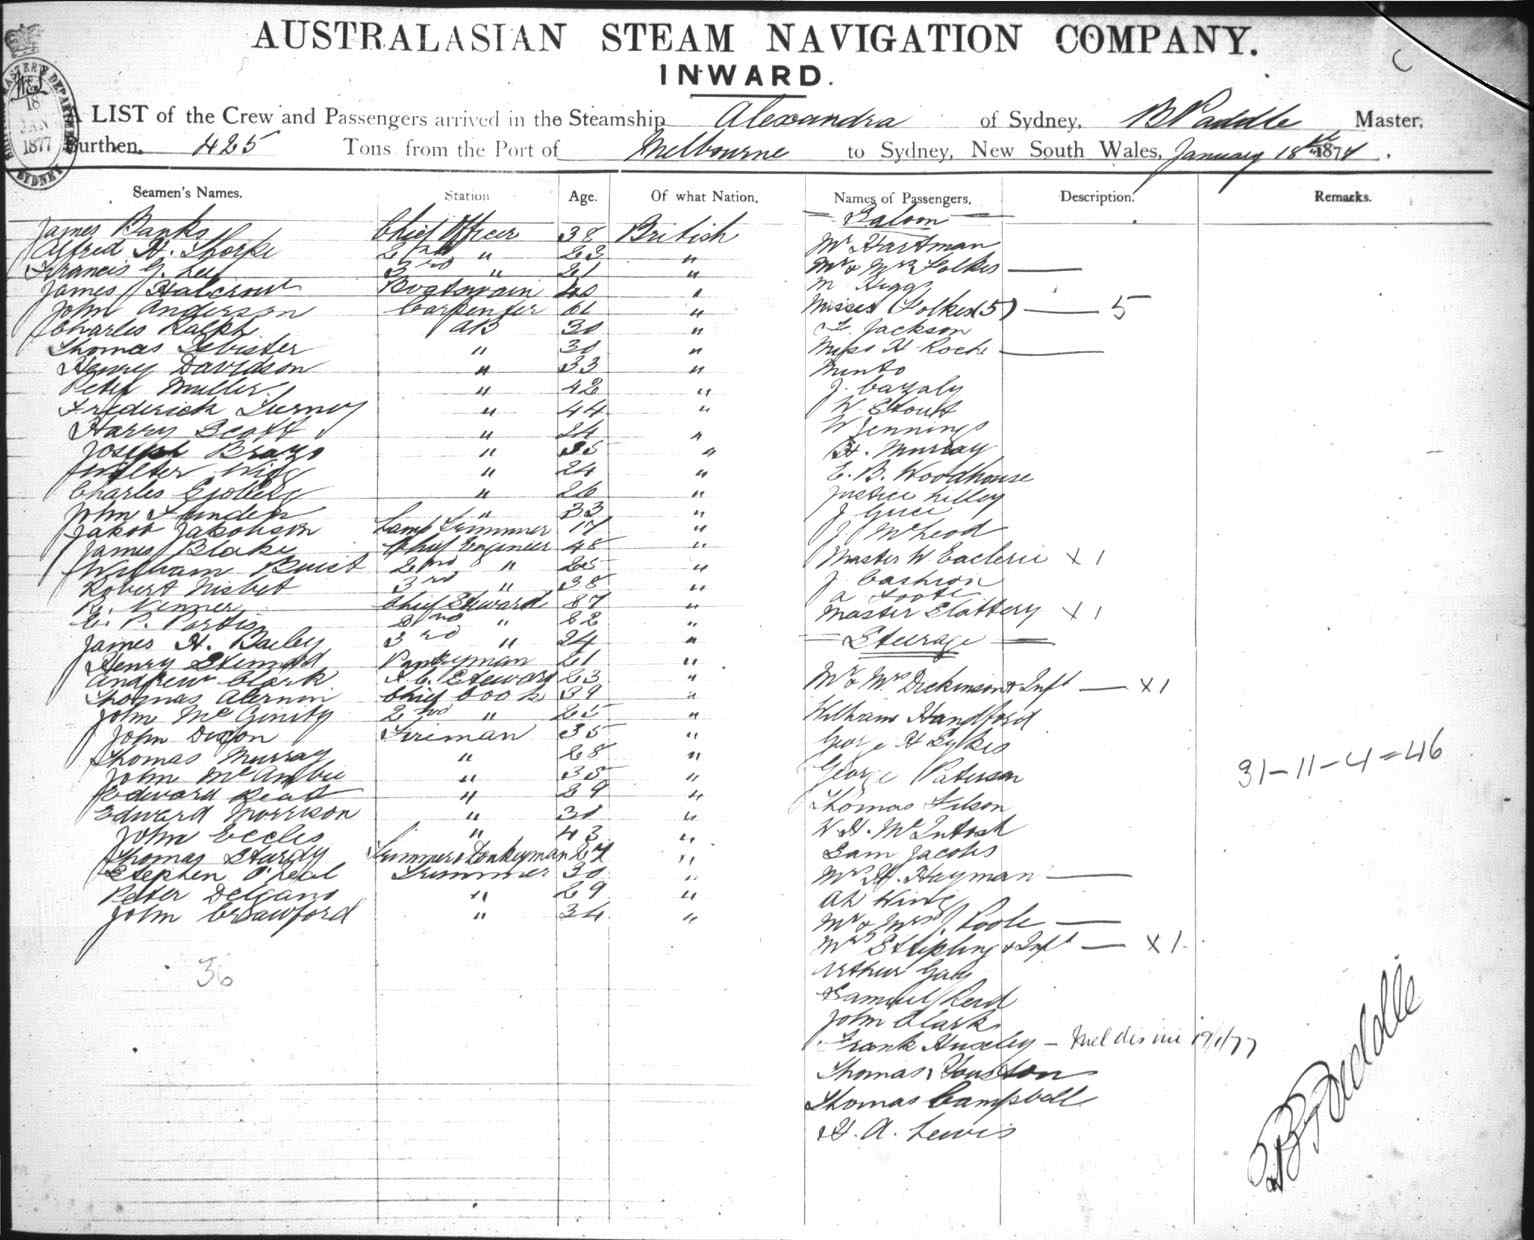 AUSTRALASIAN STEAM NAVIGATION COMPANY.
INWARD.
C
18
JAN
1877
SYDNEY
A LIST of the Crew and Passengers arrived in the Steamship Alexandra of Sydney, B Paddle Master,
Burthen, 425 Tons from the Port of Melbourne to Sydney, New South Wales, January 18th 187
Seamen's Names. Station Age. Of what Nation, Names of Passengers, Description. Remarks.
James Banks Chief Officer 38 British
Alfred H. Thorpe 2nd " 23 "
Francis G. Lee 3rd " 21 "
James Halcrow Boatswain 40 "
John Anderson Carpenter 61 "
Charles Ralph AB 30 "
Thomas Isbister " 30 "
Henry Davidson " 33 "
Peter Muller " 42 "
Frederick " 44 "
Harry Scott " 24 "
Joseph " 35 "
" 24 "
Charles " 26 "
John " 33 "
Jakob Jakobson Lamp Trimmer 17 "
James Blake Chief Engineer 48 "
William Buist 2nd " 25 "
Robert Nisbet 3rd " 38 "
Chief Steward "
C. P. 2nd " 22 "
James H. Bailey 3rd " 24 "
Henry Pantryman 21 "
Andrew Clark Steward 23 "
Thomas Chief Cook 39 "
John McGinity 2nd " 25 "
John Dixon Fireman 35 "
Thomas Murray " 28 "
John " 35 "
Edward " 29 "
Edward Morrison " 30 "
John Eccles " 43 "
Thomas Hardy Trimmer & Donkeyman 27 "
Stephen O'Neal Trimmer 30 "
Peter Delgano " 29 "
John Crawford " 34 "
36
Saloon
Mr Hartman
Mr & Mrs Folkes
M Higgs
Misses Folkes (5) 5
T. Jackson
Miss H Roche
Minto
J. Cazaly
W. Stoutt
W Jennings
H. Murray
E. B. Woodhouse
Justice Lilley
J Grice
J McLeod
Master W X 1
J Cashion
A Foote
Master Slattery X 1
Steerage
Mr & Mrs Dickinson & Inft X 1
William Handford
George H Sykes
George Paterson
Thomas Gilson
H. McIntosh
Sam Jacobs
Mrs H. Hayman
Ah King
Mr & Mrs J. Poole
Mrs Stepling & Inft X 1
Arthur Gay
Samuel Reid
John Clark
Frank Huxley
Thomas Houston
Thomas Campbell
H. A. Lewis
31-11-4=46
B Paddle